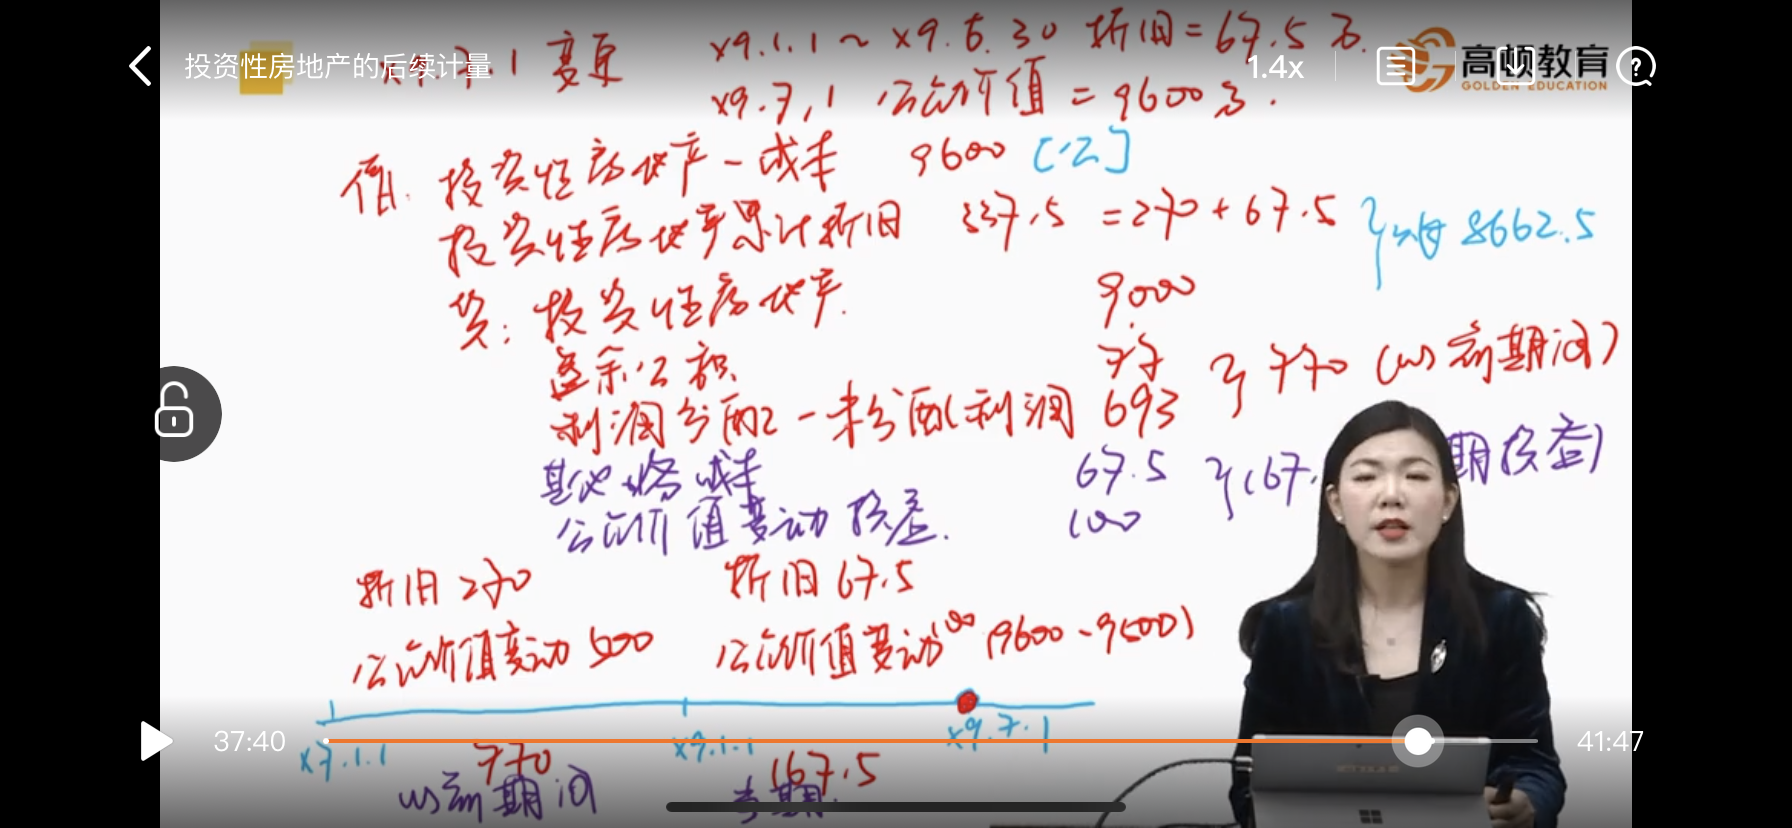 x9.1.1 ~ x9.6.30 折旧 = 67.5 万.
投资性房地产的后续计量
7.1 变更
1.4x
高顿教育
GOLDEN EDUCATION
x9.7.1 公允价值 = 9600万.
借: 投资性房地产 - 成本 9600 [公]
投资性房地产累计折旧 337.5 = 270 + 67.5 } 账 8662.5
贷: 投资性房地产. 9000
盈余公积 77
} 770 (以前期间)
利润分配 - 未分配利润 693
其他业务成本 67.5
} 167. 期损益)
公允价值变动损益. 100
折旧 270 折旧 67.5
公允价值变动 500 公允价值变动 100 (9600 - 9500)
37:40
41:47
x7.1.1 x9.1.1 x9.7.1
770 167.5
以前期间 当期